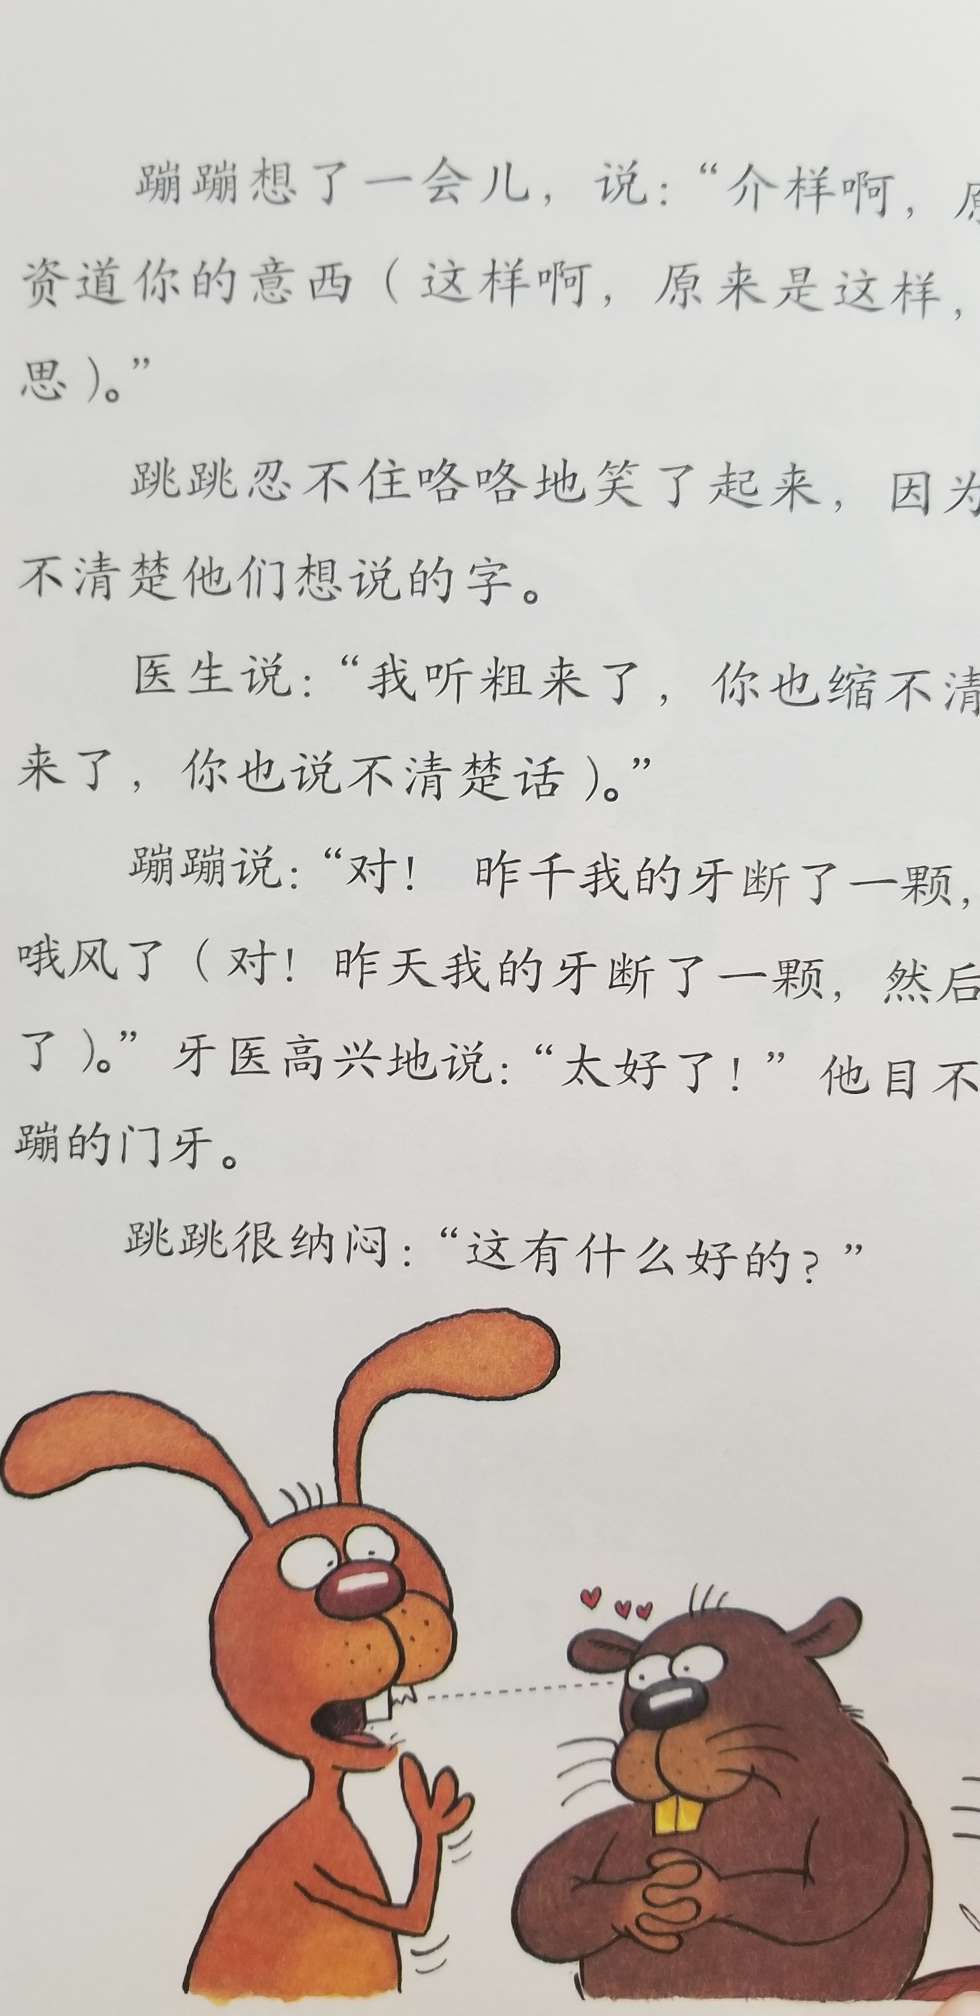 蹦蹦想了一会儿，说：“介样啊，原
资道你的意西（这样啊，原来是这样，
思）。”
跳跳忍不住咯咯地笑了起来，因为
不清楚他们想说的字。
医生说：“我听粗来了，你也缩不清
来了，你也说不清楚话）。”
蹦蹦说：“对！ 昨千我的牙断了一颗，
哦风了（对！昨天我的牙断了一颗，然后
了）。”牙医高兴地说：“太好了！”他目不
蹦的门牙。
跳跳很纳闷：“这有什么好的？”